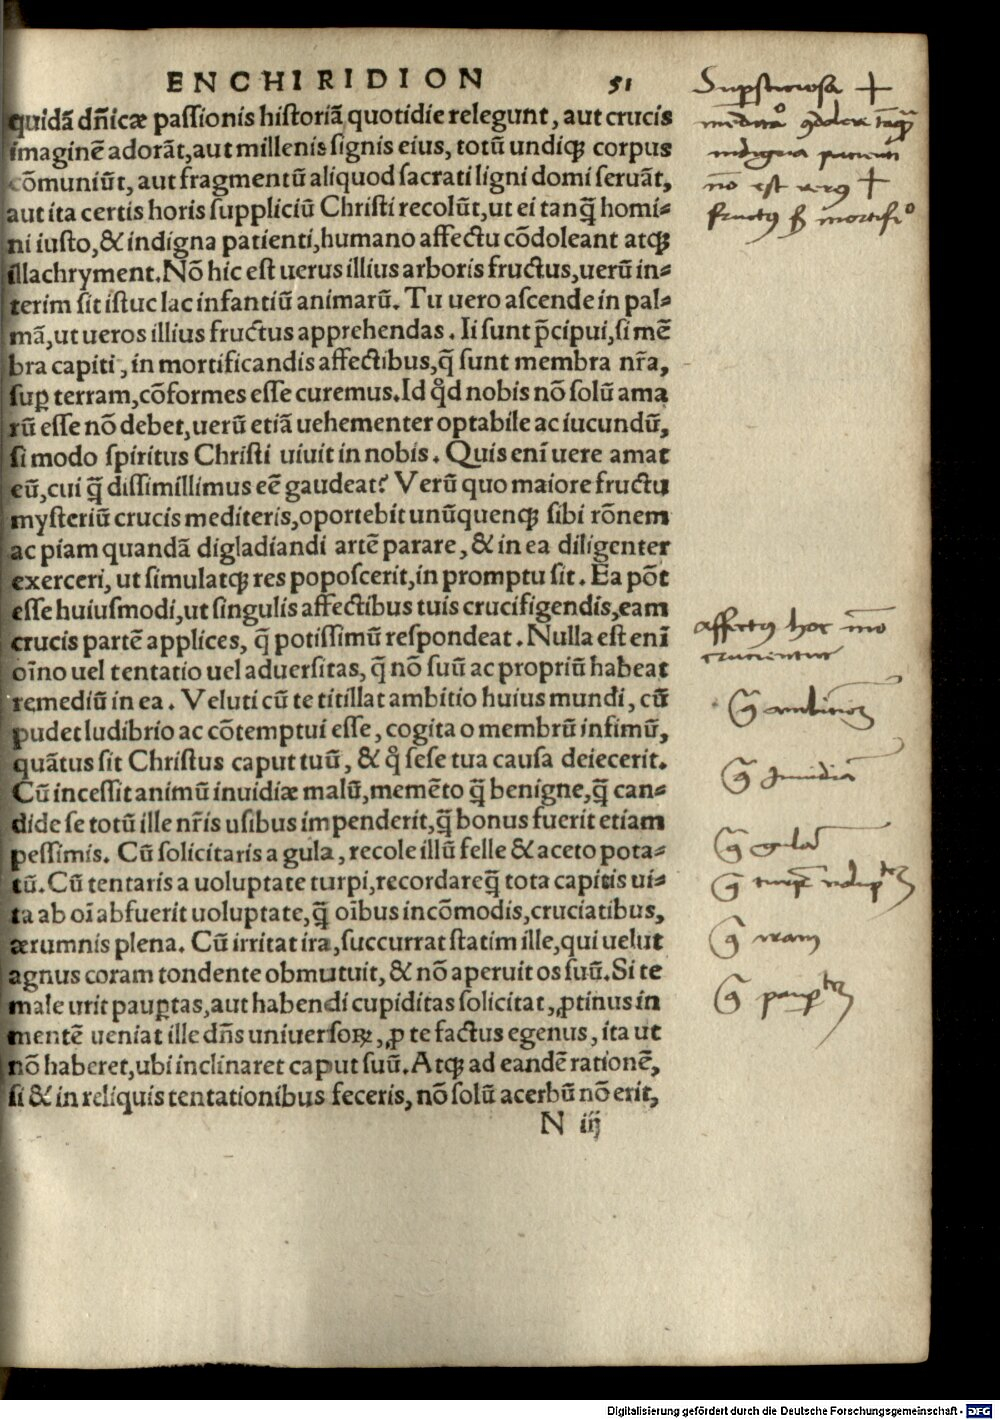 ENCHIRIDION 51
quidā dñicæ passionis historiā quotidie relegunt, aut crucis
imaginē adorāt, aut millenis signis eius, totū undiqꝫ corpus
cōmuniūt, aut fragmentū aliquod sacrati ligni domi seruāt,
aut ita certis horis suppliciū Christi recolūt, ut ei tanq̄ homi⸗
ni iusto, & indigna patienti, humano affectu cōdoleant atqꝫ
illachryment. Nō hic est uerus illius arboris fructus, uerū in⸗
terim sit istuc lac infantiū animarū. Tu uero ascende in pal⸗
mā, ut ueros illius fructus apprehendas. Ii sunt p̄cipui, si mē
bra capiti, in mortificandis affectibus, q̄ sunt membra nr̄a,
suꝑ terram, cōformes esse curemus. Id qd̉ nobis nō solū ama
rū esse nō debet, uerū etiā uehementer optabile ac iucundū,
si modo spiritus Christi uiuit in nobis. Quis enī uere amat
eū, cui q̄ dissimillimus eē gaudeat? Verū quo maiore fructu
mysteriū crucis mediteris, oportebit unūquenqꝫ sibi rōnem
ac piam quandā digladiandi artē parare, & in ea diligenter
exerceri, ut simulatqꝫ res poposcerit, in promptu sit. Ea pōt
esse huiusmodi, ut singulis affectibus tuis crucifigendis, eam
crucis partē applices, q̄ potissimū respondeat. Nulla est enī
oīno uel tentatio uel aduersitas, q̄ nō suū ac propriū habeat
remediū in ea. Veluti cū te titillat ambitio huius mundi, cū
pudet ludibrio ac cōtemptui esse, cogita o membrū infimū,
quātus sit Christus caput tuū, & q̉ sese tua causa deiecerit.
Cū incessit animū inuidiæ malū, memēto q̄ benigne, q̄ can⸗
dide se totū ille nr̄is usibus impenderit, q̄ bonus fuerit etiam
pessimis. Cū solicitaris a gula, recole illū felle & aceto pota⸗
tū. Cū tentaris a uoluptate turpi, recordare q̄ tota capitis ui⸗
ta ab oī abfuerit uoluptate, q̄ oībus incōmodis, cruciatibus,
ærumnis plena. Cū irritat ira, succurrat statim ille, qui uelut
agnus coram tondente obmutuit, & nō aperuit os suū. Si te
male urit pauꝑtas, aut habendi cupiditas solicitat, ꝓtinus in
mentē ueniat ille dn̄s uniuersoꝝ, ꝓ te factus egenus, ita ut
nō haberet, ubi inclinaret caput suū. Atqꝫ ad eandē rationē,
si & in reliquis tentationibus feceris, nō solū acerbū nō erit,
N iij
nō est verꝰ +
fructꝰ
affectꝰ hoc mō
crucientur
ambitionē
Inuidiā
gulā
iram
Digitalisierung gefördert durch die Deutsche Forschungsgemeinschaft - DFG